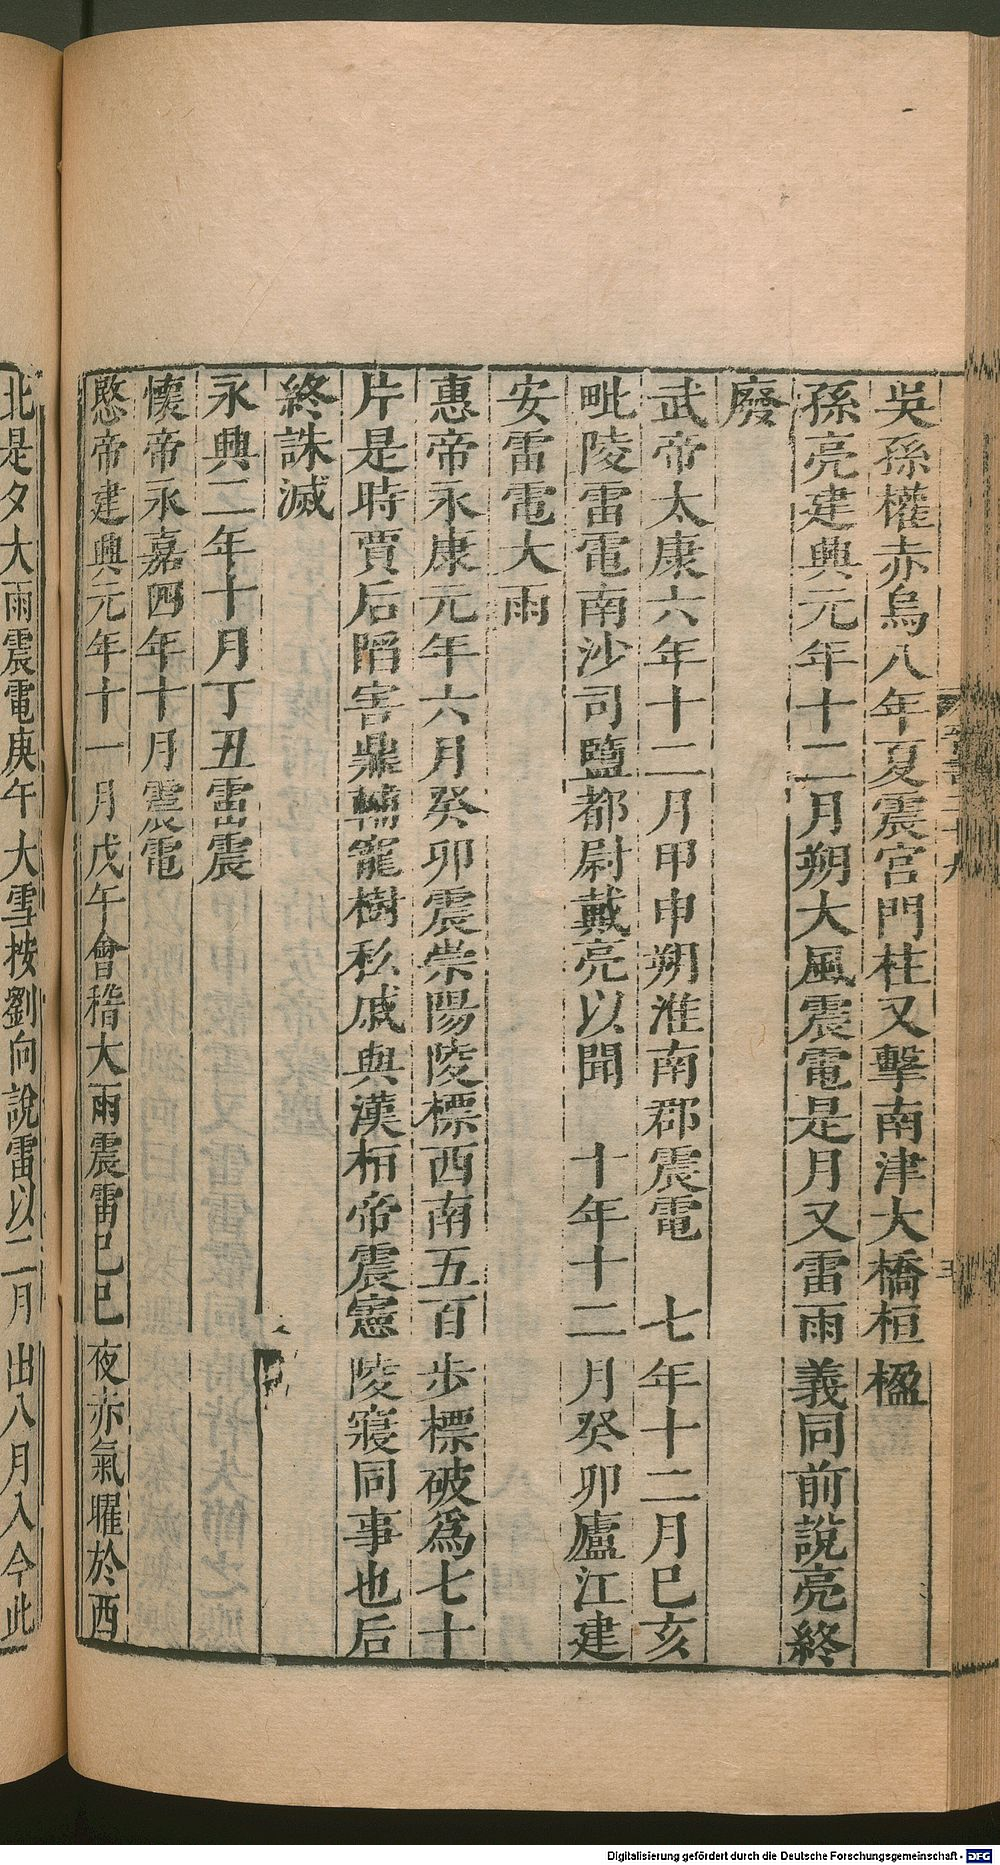 吳孫權赤烏八年夏震宮門柱又擊南津大橋桓楹
孫亮建興元年十二月朔大風震電是月又雷雨義同前說亮終
廢
武帝太康六年十二月甲申朔淮南郡震電　七年十二月已亥
毗陵雷電南沙司鹽都尉戴亮以聞　十年十二月癸卯廬江建
安雷電大雨
惠帝永康元年六月癸卯震崇陽陵標西南五百步標破爲七十
片是時賈后陷害鼎輔寵樹私戚與漢桓帝震憲陵寢同事也后
終誅滅
永興二年十月丁丑雷震
懷帝永嘉四年十月震電
愍帝建興元年十一月戊午會稽大雨震雷已巳夜赤氣曜於西
北是夕大雨震電庚午大雪按劉向說雷以二月出八月入今此
Digitalisierung gefördert durch die Deutsche Forschungsgemeinschaft - DFG